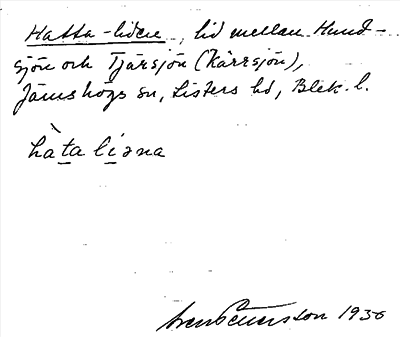 Hatta-liden, lid mellan Hund-
sjön och Tjärsjön (Kärrsjön),
Jämshögs sn, Listers hd, Blek. l.
hàta liəna
1936